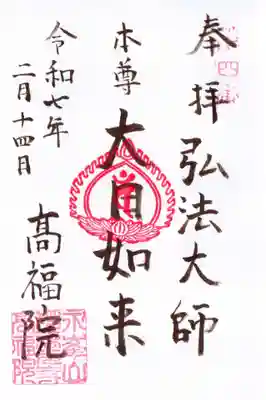 奉拝 弘法大師
本尊 大日如来
令和七年
二月十四日
高福院